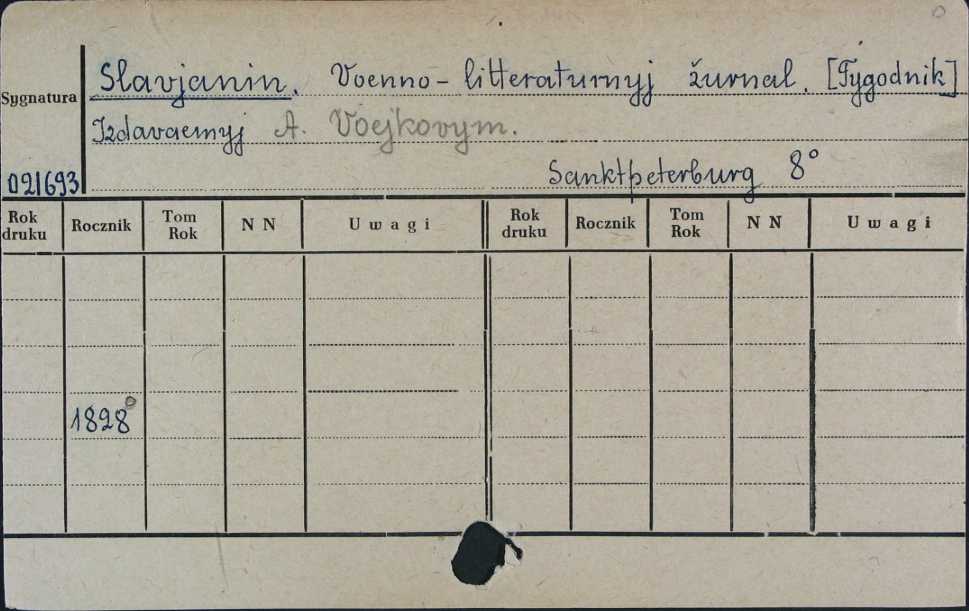 Slavjanin. Voenno-litteraturnyj žurnal. [Tygodnik]
Sygnatura
Izdavaemyj A. Voejkovym.
021693
Sanktpeterburg 8°
Rok druku Rocznik Tom Rok N N Uwagi Rok druku Rocznik Tom Rok N N Uwagi
1828